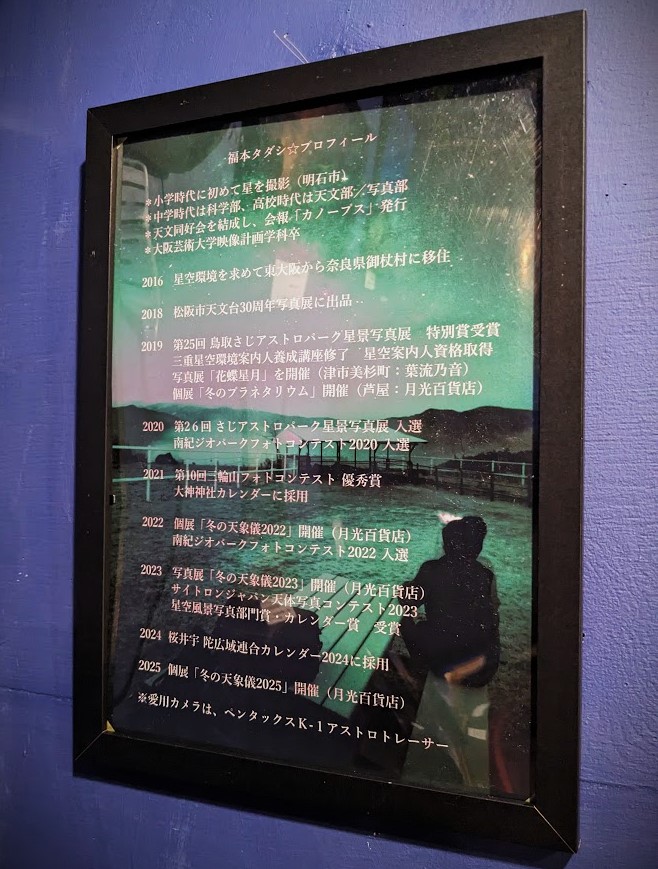 福本タダシ☆プロフィール
＊小学時代に初めて星を撮影（明石市）
＊中学時代は科学部、高校時代は天文部／写真部
＊天文同好会を結成し、会報「カノープス」発行
＊大阪芸術大学映像計画学科卒
2016 星空環境を求めて東大阪から奈良県御杖村に移住
2018 松阪市天文台30周年写真展に出品
2019 第25回 鳥取さじアストロパーク星景写真展 特別賞受賞
三重星空環境案内人養成講座修了 星空案内人資格取得
写真展「花蝶星月」を開催（津市美杉町：葉流乃音）
個展「冬のプラネタリウム」開催（芦屋：月光百貨店）
2020 第26回 さじアストロパーク星景写真展 入選
南紀ジオパークフォトコンテスト2020 入選
2021 第10回三輪山フォトコンテスト 優秀賞
大神神社カレンダーに採用
2022 個展「冬の天象儀2022」開催（月光百貨店）
南紀ジオパークフォトコンテスト2022 入選
2023 写真展「冬の天象儀2023」開催（月光百貨店）
サイトロンジャパン天体写真コンテスト2023
星空風景写真部門賞・カレンダー賞 受賞
2024 桜井宇 陀広域連合カレンダー2024に採用
2025 個展「冬の天象儀2025」開催（月光百貨店）
※愛用カメラは、ペンタックスK-1アストロトレーサー